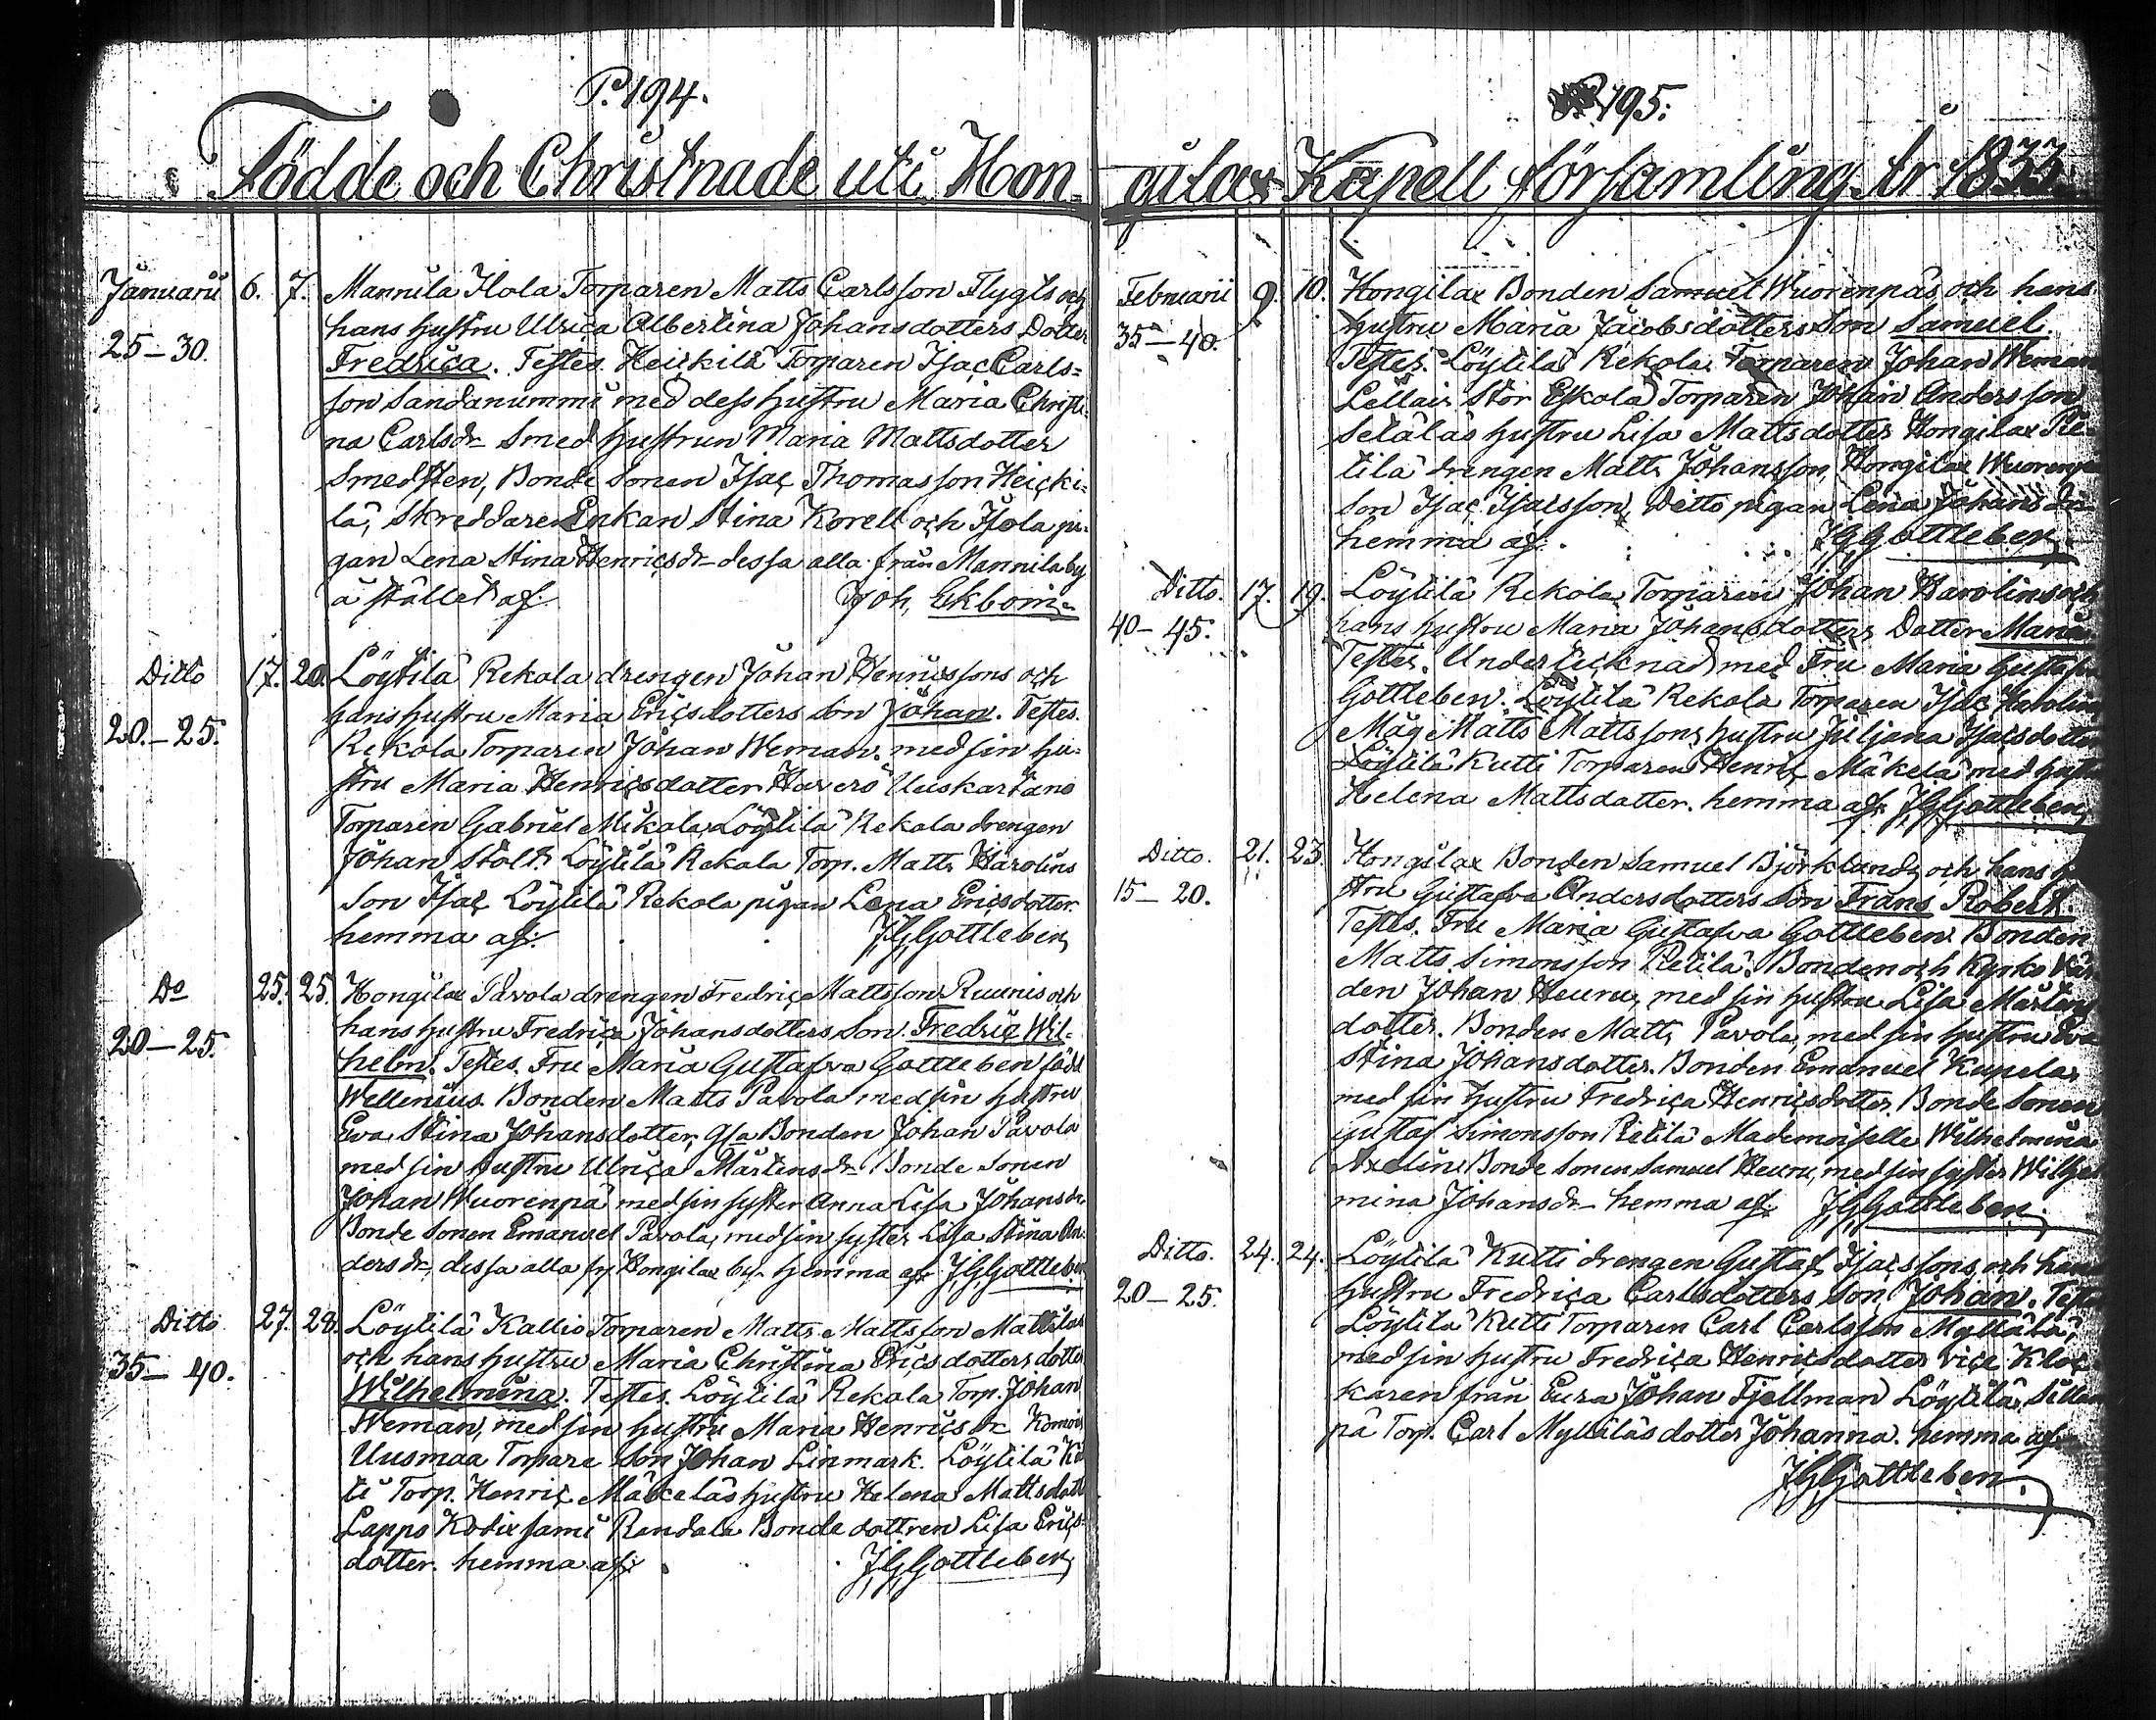 P. 194.
Födde och Christnade uti Hon-
Januarii 6. 7. Mannila Ilola Torparen Matts Carlsson Flygts och
25-30. hans hustru Ulrica Albertina Johansdotters Dotter
Fredrica. Testes. Heickilä Torparen Isac Carls=
son Sandanummi med dess hustru Maria Christi
na Carlsdr Smed hustrun Maria Mattsdotter
Smedsten, Bonde Sonen Isac Thomasson Heicki=
lä, Skreddare Enkan Stina Korell och Ilola pi-
gan Lena Stina Henricsdr dessa alla från Mannila by
å stället af. Joh. Ekbom
Ditto 17. 20. Löytilä Rekola drengen Johan Henricssons och
20.-25. hans hustru Maria Ericsdotters Son Johan. Testes.
Rekola Torparen Johan Weman. med sin hu-
stru Maria Henricsdotter Haverö Uuskartano
Torparen Gabriel Mikola, Löytilä Rekola drengen
Johan Stolt. Löytilä Rekola Torp. Matts Harolins
Son Isac Löytilä Rekola pigan Lena Ericsdotter.
hemma af. JGGottleben
Do 25. 25. Hongilax Pavola drengen Fredric Mattsson Ruunis och
20-25. hans hustru Fredrica Johansdotters Son. Fredric Wil-
helm. Testes. Fru Maria Gustafva Gottleben född
Wellenius. Bonden Matts Pavola med sin hustru
Eva Stina Johansdotter, Bonden Johan Pavola
med sin hustru Ulrica Mårtensdr Bonde Sonen
Johan Wuorenpä med sin syster Anna Lisa Johansdr.
Bonde Sonen Emanuel Pavola, med sin syster Lisa Stina An-
dersdr, dessa alla fr Hongilax by. hemma af JGGottleben
Ditto 27. 28. Löytilä Kallio Torparen Matts Mattsson Mattilas
35-40. och hans hustru Maria Christina Ericsdotters dotter
Wilhelmina. Testes. Löytilä Rekola Torp. Johan
Weman, med sin hustru Maria Henricsdr
Uusmaa Torpare Son Johan Linmark. Löytilä
ti Torp. Henric Mäckeläs hustru Helena Mattsdott
Lappo Kodixsami Randala Bonde dottren Lisa Erics-
dotter. hemma af. JGGottleben
195.
gilax Kapell församling År 1833.
Februarii 9. 10. Hongilax Bonden Samuel Wuorenpäs och hans
35-40. hustru Maria Jacobsdotters Son Samuel.
Testes. Löytilä Rekola Torparen Johan Weman
Lellais Stor Eskola Torparen Johan Andersson
Seläläs hustru Lisa Mattsdotter Hongilax Pie-
tilä drengen Matts Johansson, Hongilax
Son Isac Isacsson, Ditto pigan Lena Johansdr
hemma af. JGGottleben
Ditto. 17. 19. Löytilä Rekola Torparen Johan Harolins och
40-45. hans hustru Maria Johansdotters Dotter Maria
Testes. Undertecknad med Fru Maria Gustafva
Gottleben. Löytilä Rekola Torparen Isac Harolins
Måg Matts Mattssons hustru Juljana Isacsdotter
Löytilä Kutti Torparen Henric Mäkelä med hustru
Helena Mattsdotter. hemma af JGGottleben
Ditto. 21. 23. Hongilax Bonden Samuel Björklunds och hans
15-20. stru Gustafva Andersdotters Son Frans Robert.
Testes. Fru Maria Gustafva Gottleben Bonden
Matts Simonsson Pietilä. Bonden och Kyrko Vär
den Johan Heuru, med sin hustru Lisa Mårtens
dotter. Bonden Matts Pavola, med sin hustru Eva
Stina Johansdotter. Bonden Emanuel Kupela,
med sin hustru Fredrica Henricsdotter, Bonde Sonen
Gustaf Simonsson Pietilä Mademoiselle Wilhelmina
Bonde Sonen Samuel Heuru, med sin syster Wilhel
mina Johansdr hemma af JGGottleben
Ditto. 24. 24. Löytilä Kutti drengen Gustaf Isacssons och hans
20-25. hustru Fredrica Carlsdotters Son Johan. Testes
Löytilä Kutti Torparen Carl Carlsson Myllälä,
med sin hustru Fredrica Henricsdotter vice Kloc
karen från Eura Johan Tjellman Löytilä Sillan
pä Torp. Carl Myliläs dotter Johanna. hemma af
JGGottleben